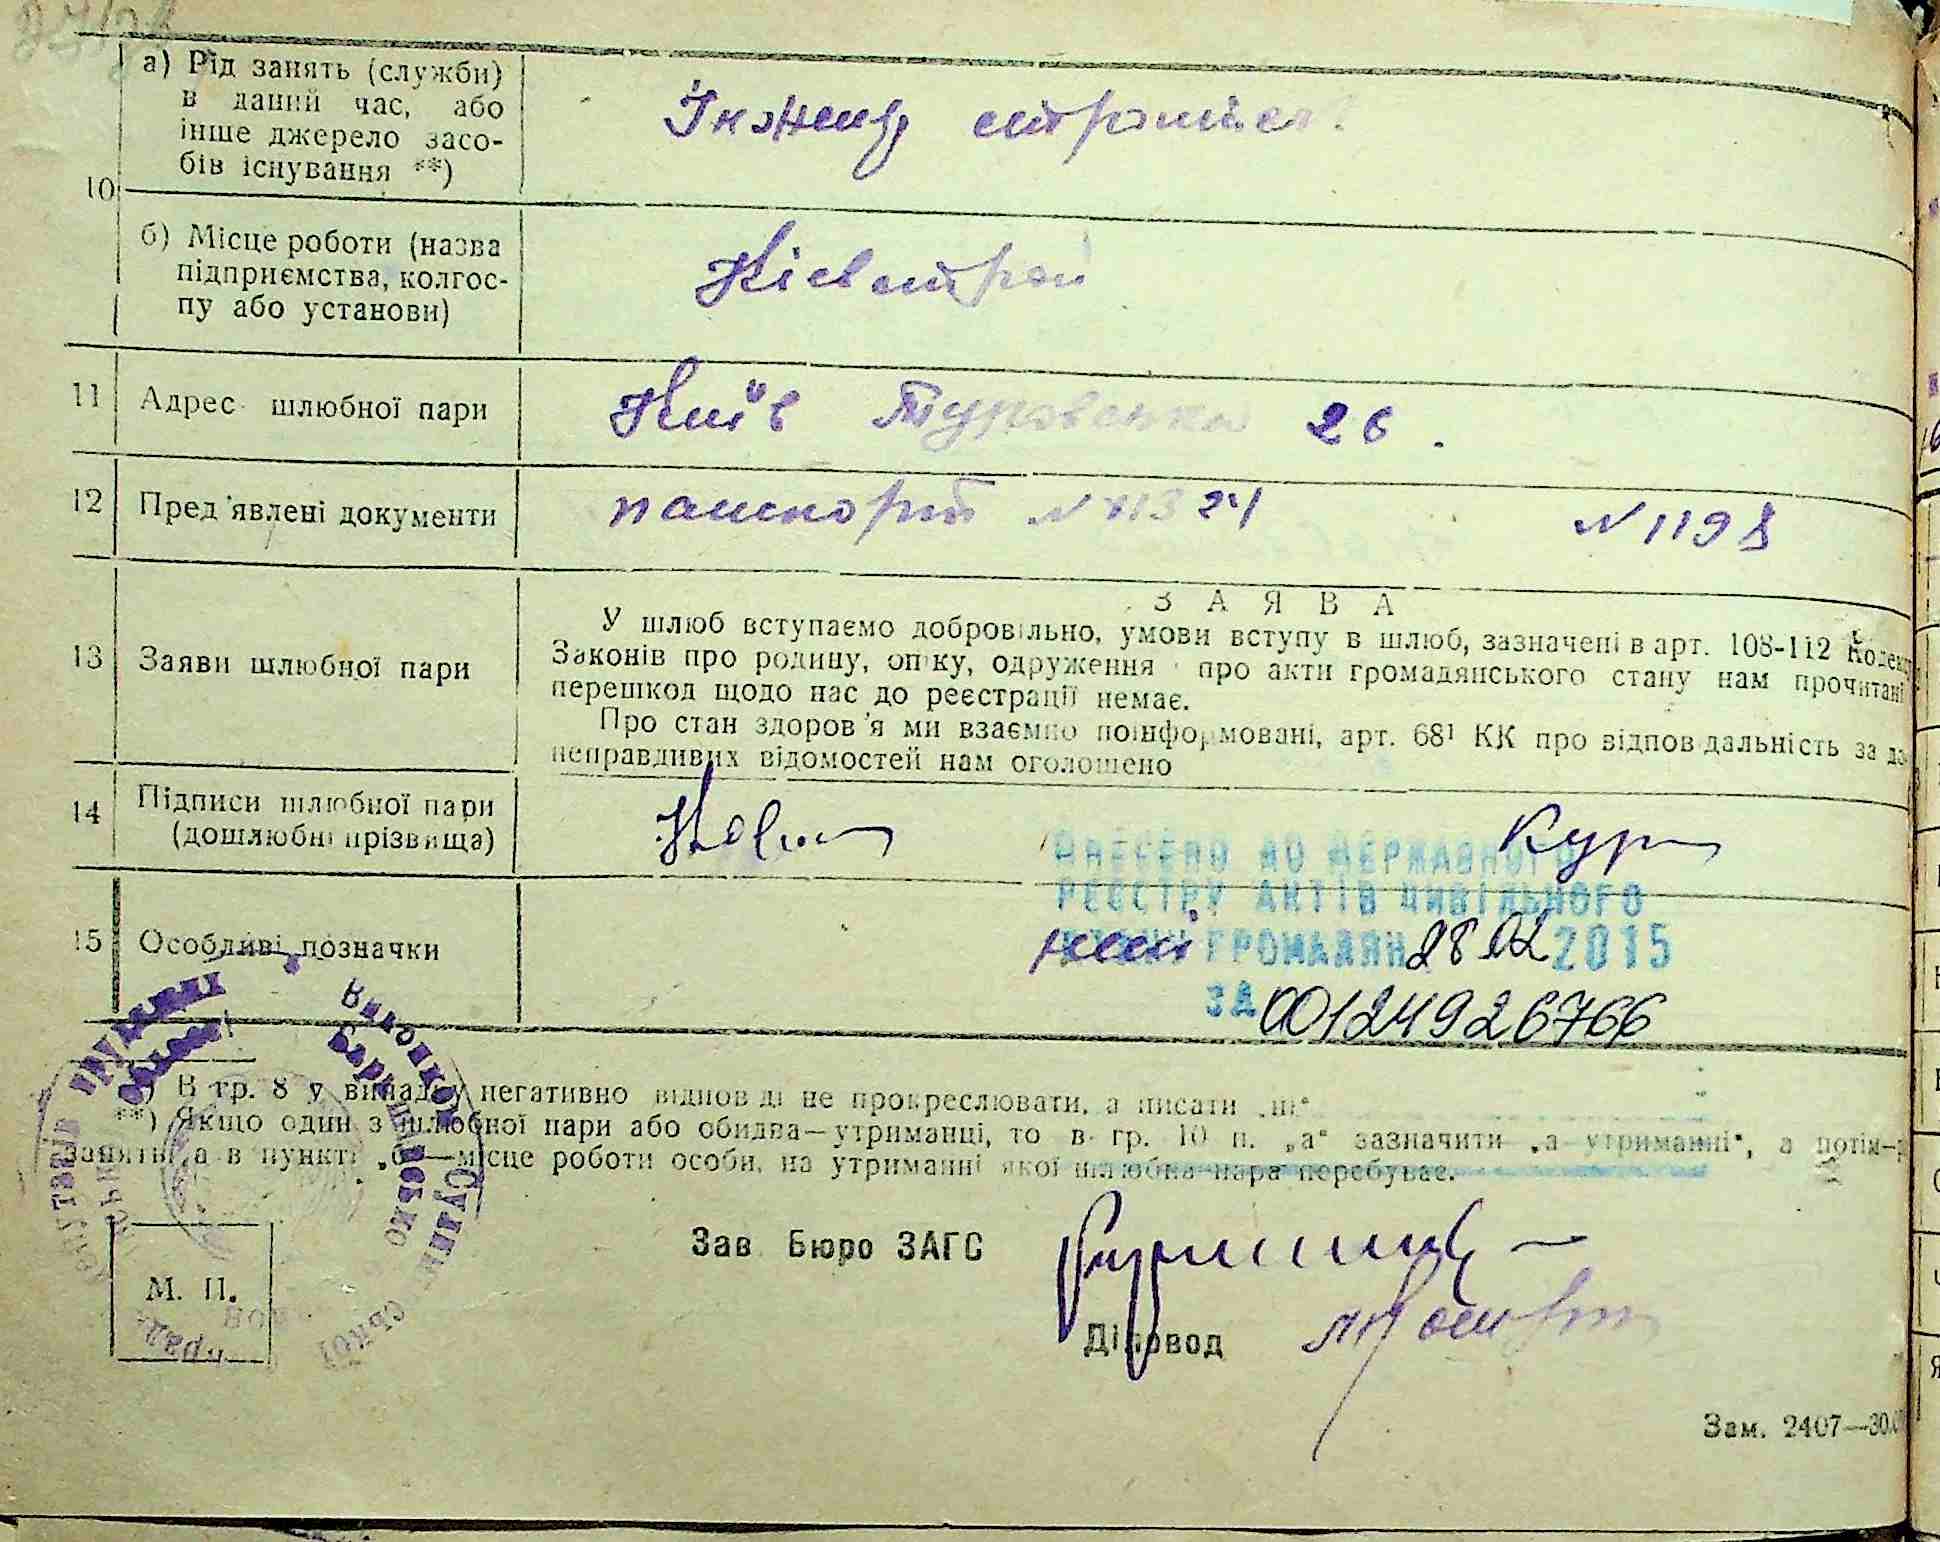 а) Рід занять (служби)
в даний час, або
інше джерело засо-
бів існування **)
Інженер
10
б) Місце роботи (назва
підприємства, колгос-
пу або установи)
Кієвстрой
11 Адрес шлюбної пари Київ Туровська 26.
12 Пред'явлені документи паспорт N 1198
ЗАЯВА
13 Заяви шлюбної пари
У шлюб вступаємо добровільно, умови вступу в шлюб, зазначені в арт. 108-112 Кодексу
Законів про родину, опіку, одруження про акти громадянського стану нам прочитані
перешкод щодо нас до реєстрації немає.
Про стан здоров'я ми взаємно поінформовані, арт. 68¹ КК про відповідальність за
неправдивих відомостей нам оголошено
14 Підписи шлюбної пари
(дошлюбні прізвища)
ВНЕСЕНО ДО ДЕРЖАВНОГО
РЕЄСТРУ АКТІВ ЦИВІЛЬНОГО
15 Особливі позначки
ГРОМАДЯН 28 02 2015
ЗА 00124926766
*) В гр. 8 у випадку негативно відповіді не прокреслювати, а писати „ні“
**) Якщо один з шлюбної пари або обидва—утриманці, то в гр. 10 п. „а“ зазначити „а утриманні“, а потім—
заняття, а в пункті „б“—місце роботи особи, на утриманні якої шлюбна пара перебуває.
Зав Бюро ЗАГС
М. П.
Діловод
Зам. 2407—30.